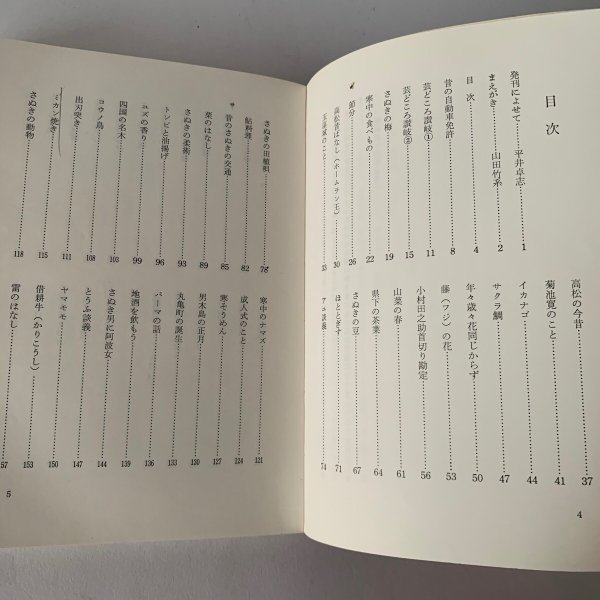 目次
発刊によせて……平井卓志……1
まえがき……山田竹系……2
目次……4
昔の自動車免許……8
芸どころ讃岐①……11
芸どころ讃岐②……15
さぬきの梅……19
寒中の食べもの……22
節分……26
高松昔ばなし(ホームラン王)……30
のこと……33
高松の今昔……37
菊池寛のこと……41
イカナゴ……44
サクラ鯛……47
年々歳々花同じからず……50
藤(フジ)の花……53
小村田之助首切り勘定……56
山菜の春……61
県下の茶業……64
さぬきの豆……67
ほととぎす……71
アユ談義……74
4
さぬきの田植唄……78
鮎料理……82
昔のさぬきの交通……85
菜のはなし……89
さぬきの柔術……93
トンビと油揚げ……96
ユズの香り……99
四国の名木……103
コウノ鳥……108
出刃突き……111
ミカン焼き……115
さぬきの動物……118
寒中のナマズ……121
成人式のこと……124
寒そうめん……127
男木島の正月……130
丸亀町の誕生……133
パーマの話……136
地酒を飲もう……139
さぬき男に阿波女……144
とうふ談義……147
ヤマモモ……150
借耕牛(かりこうし)……153
雷のはなし……57
5